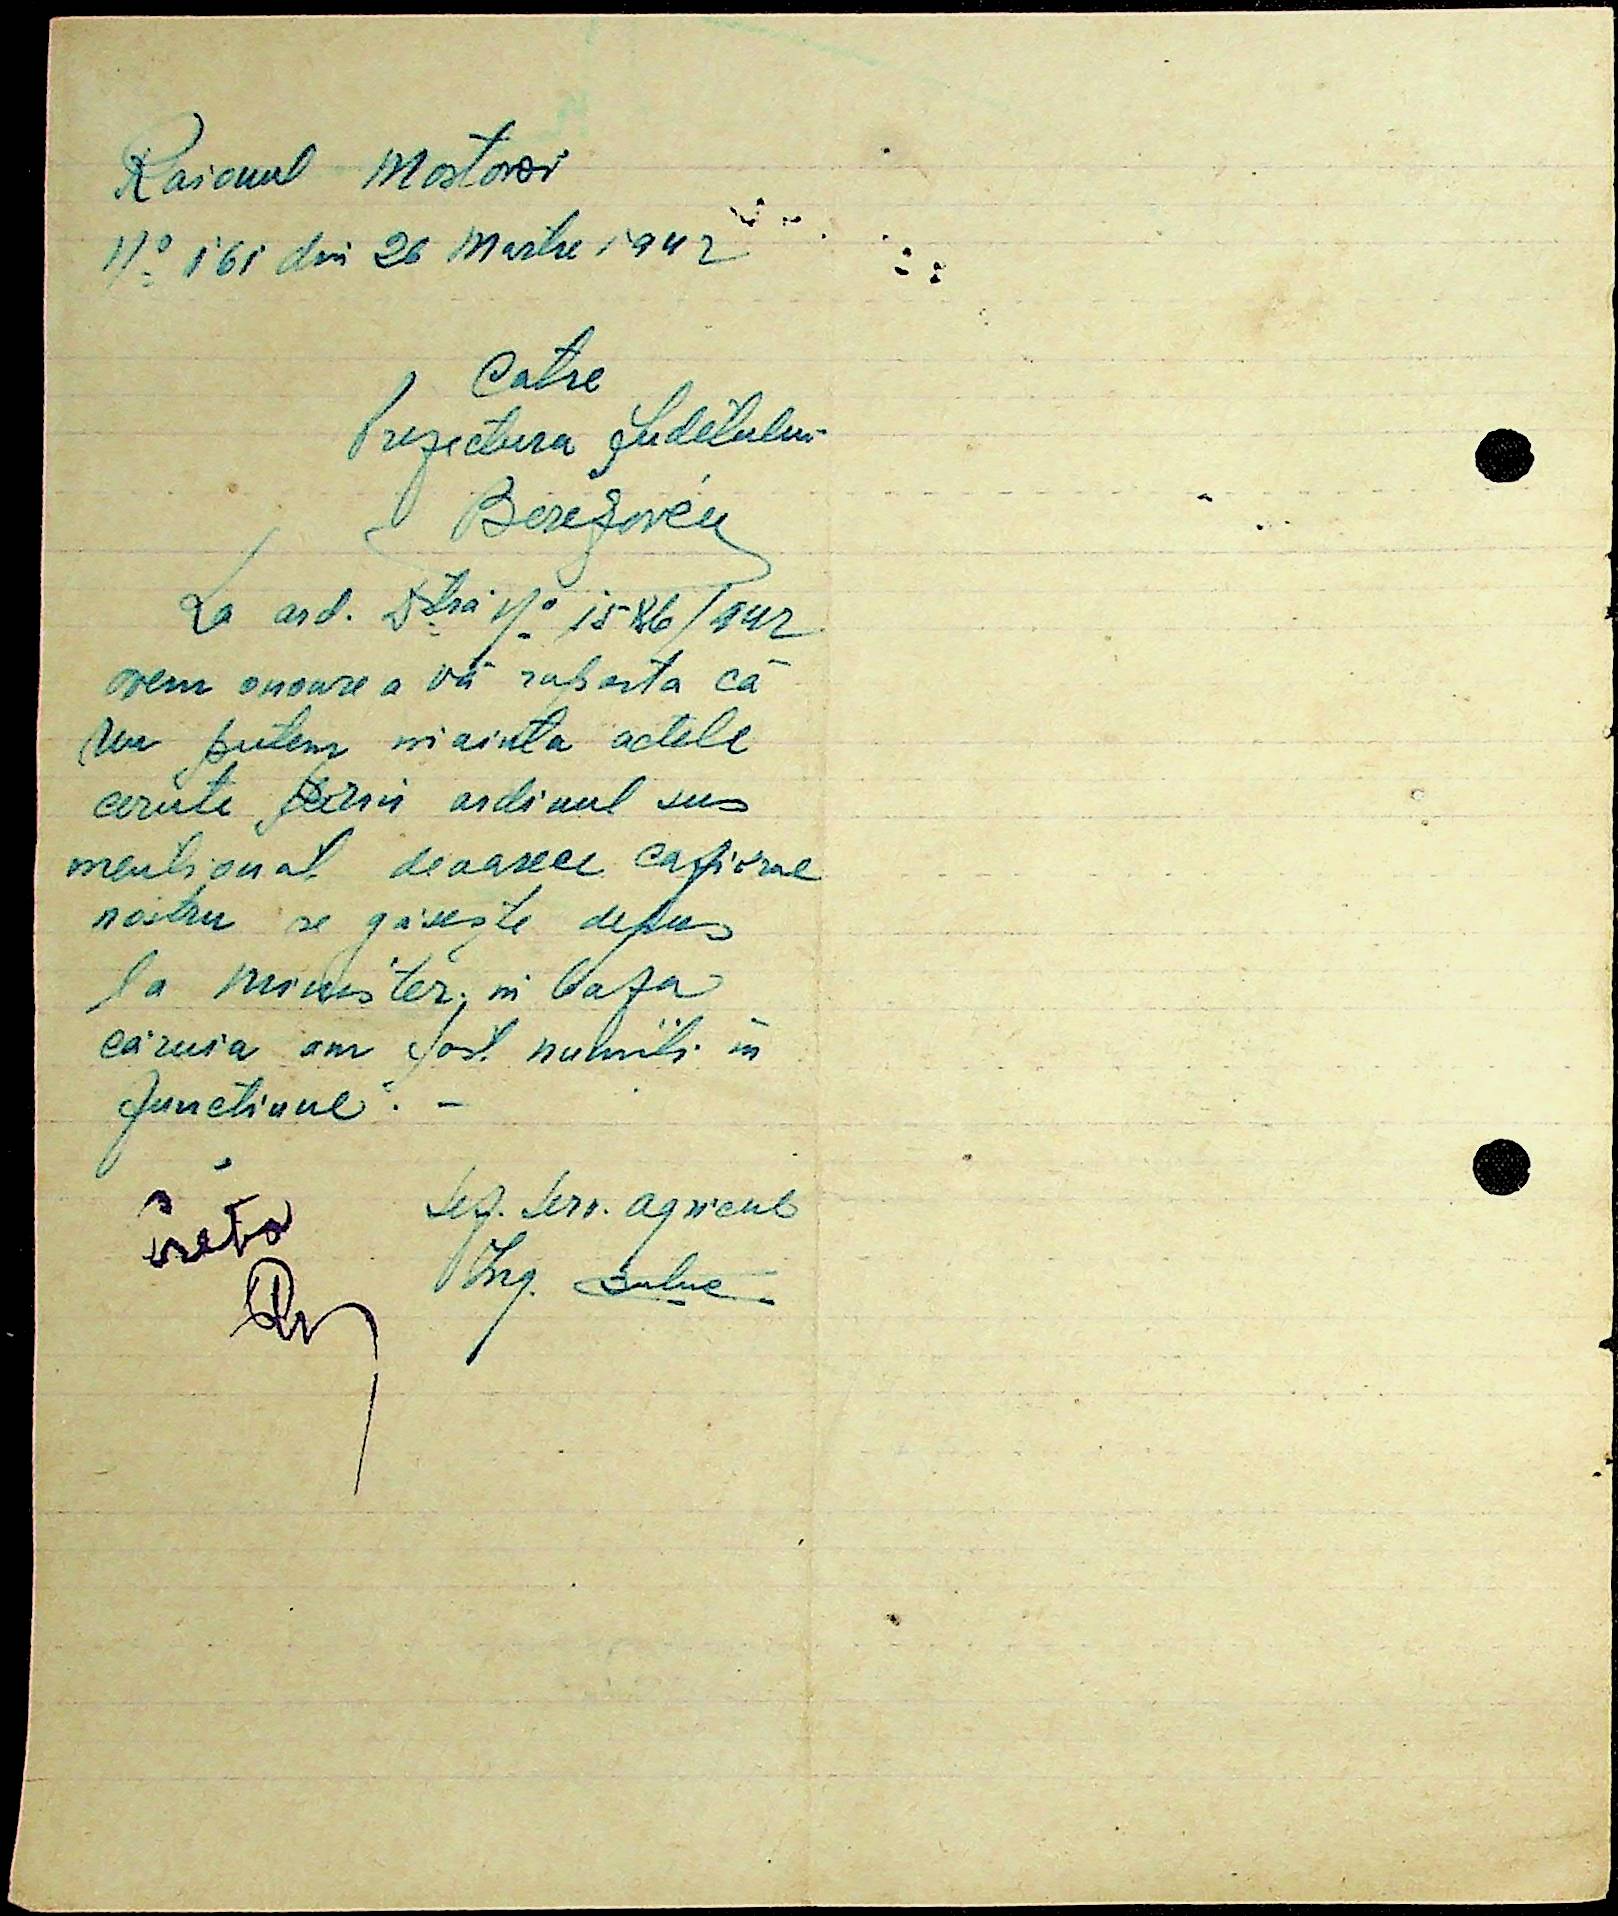 Raionul Mostovoi
Nº 161 din 26 Martie 1942
Catre
Prefectura Judetului
Berezovcu
La ord. Dtră Nº 1586/942
avem onoare a vă raporta că
nu putem inainta actele
cerute prin ordinul sus
mentionat deoarece cazierul
nostru se găseşte depus
la minister, in baza
căruia am fost numiti in
functiune. –
Sef. Serv. agricol
Ing.